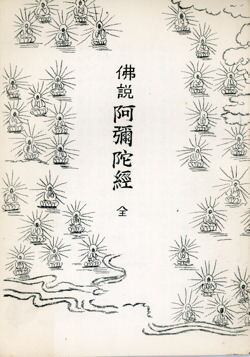 佛説阿彌陀經 全